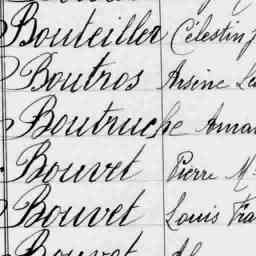 Bouteiller Célestin J
Boutros Arsène
Boutruche Ama
Bouvet Pierre M
Bouvet Louis Fra
Bouvet